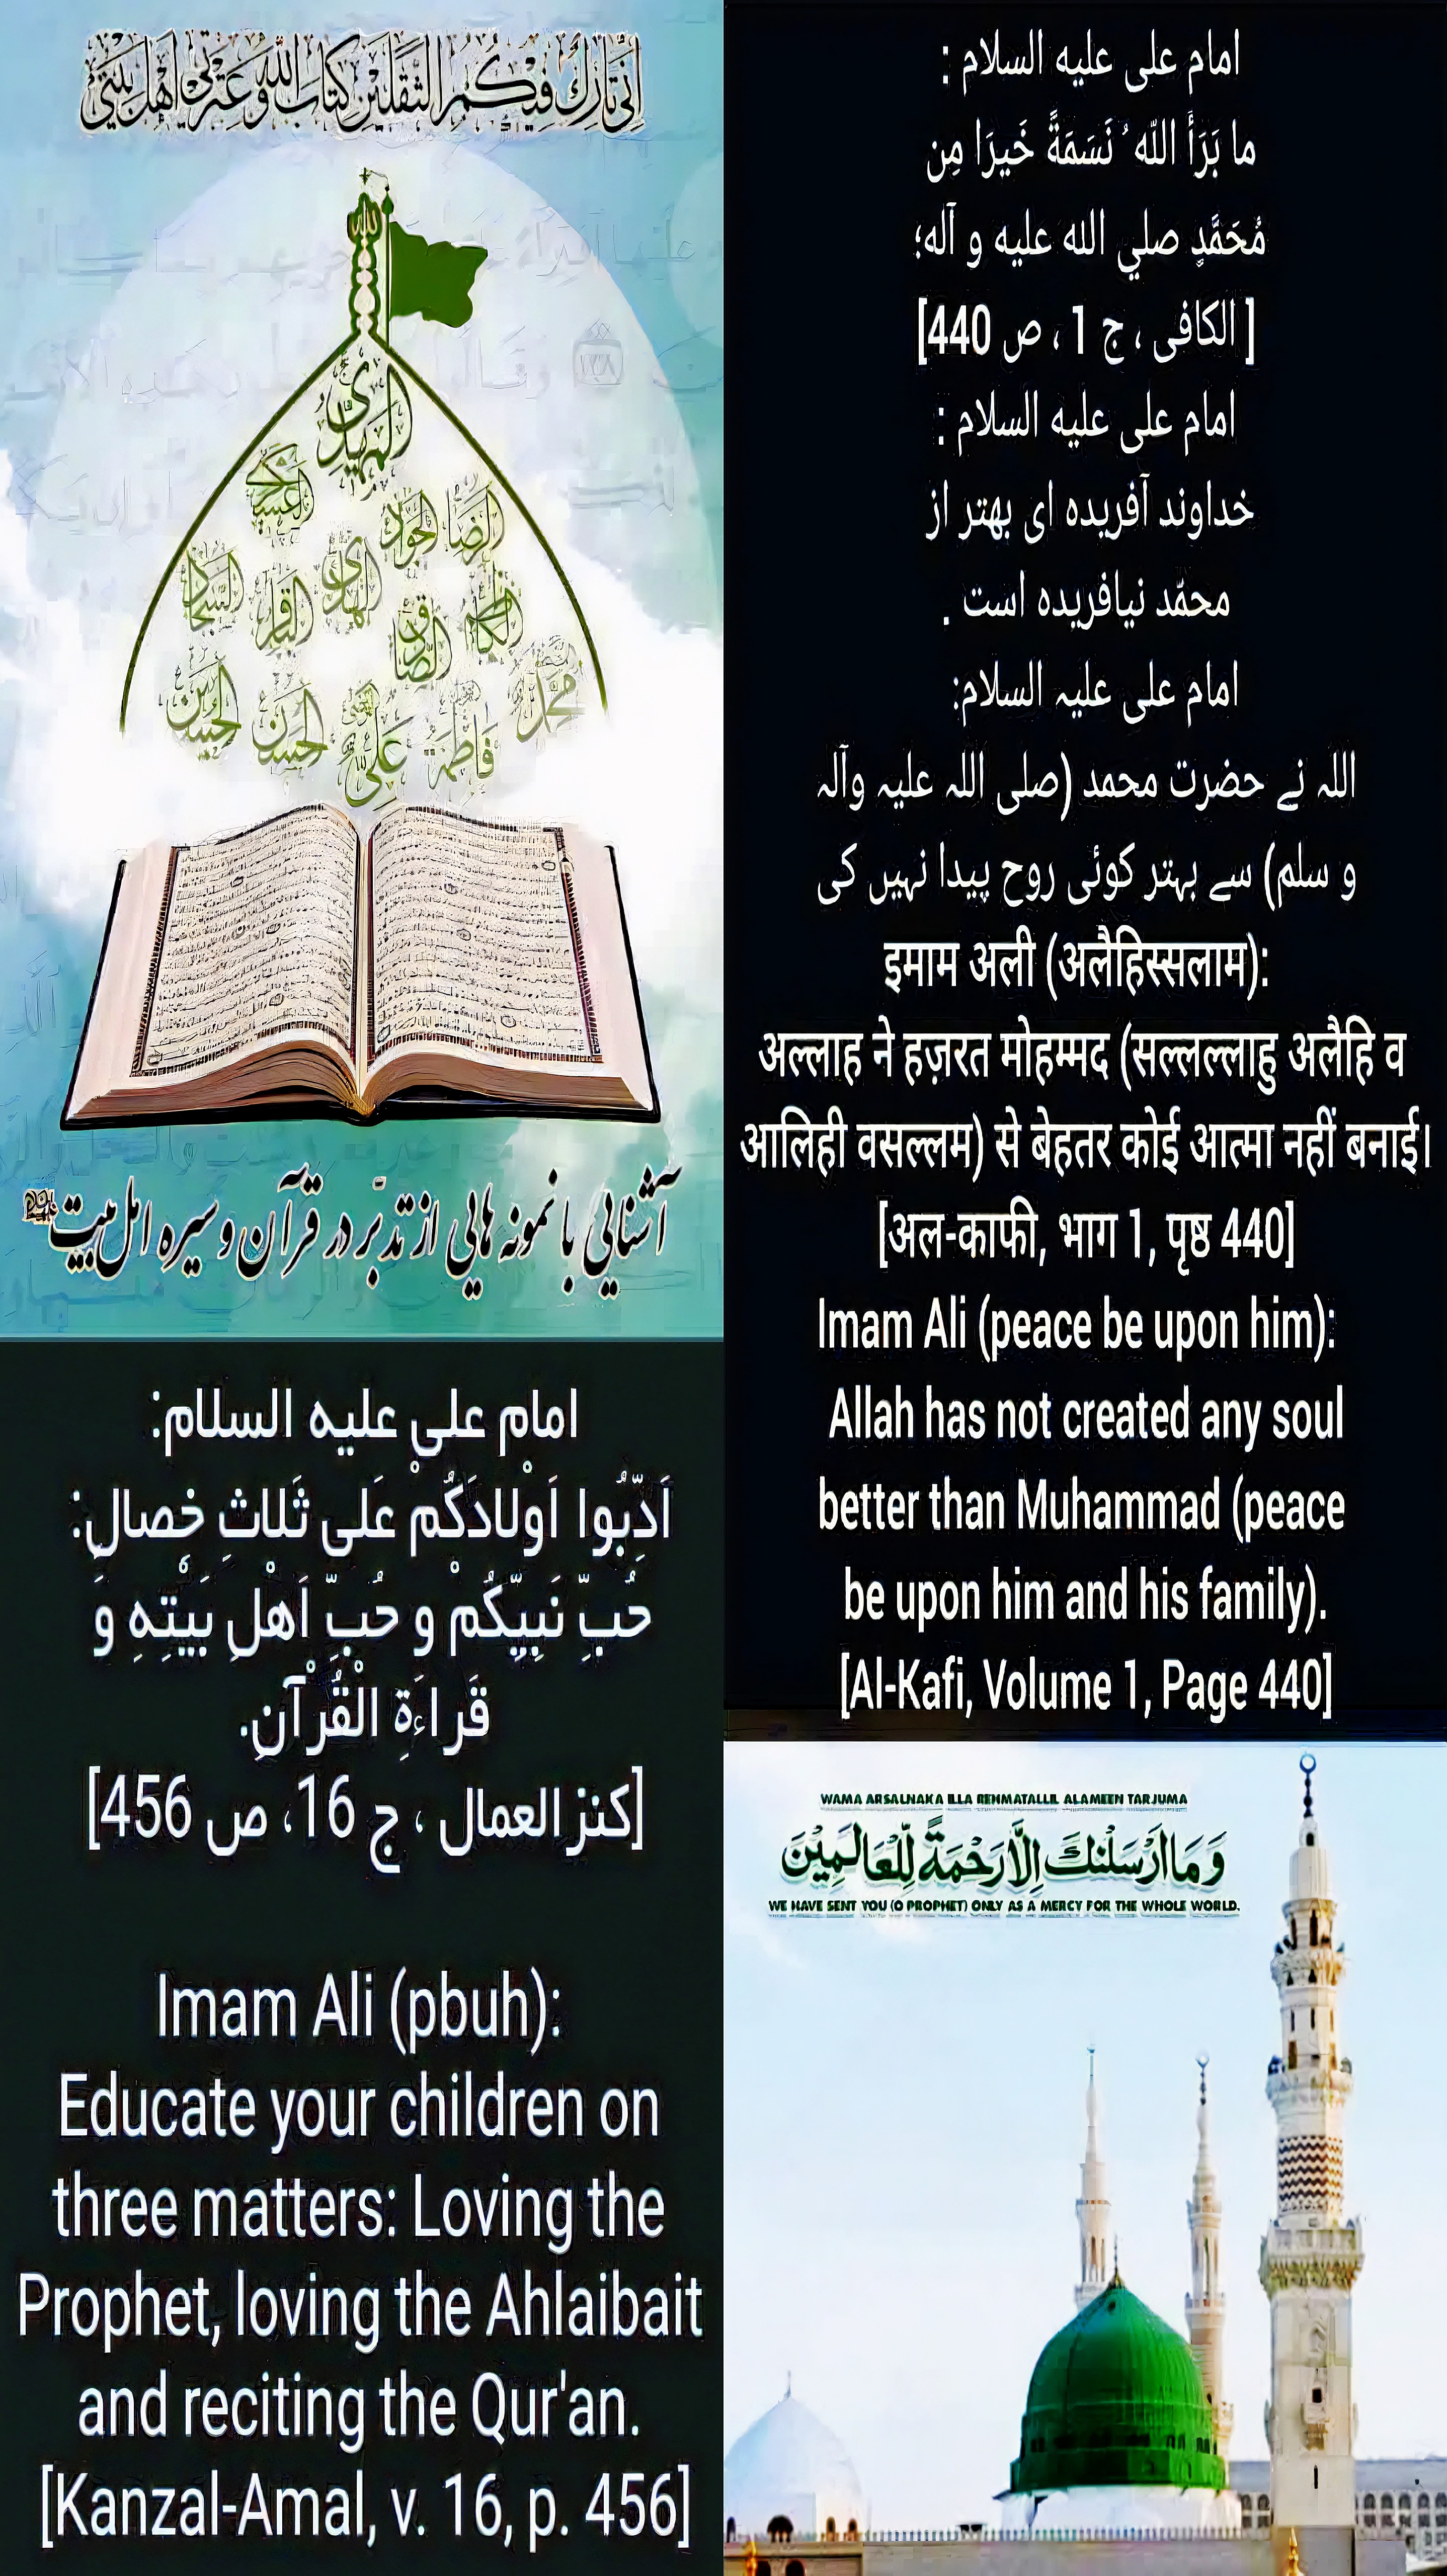 إِنِّي تَارِكٌ فِيكُمُ الثَّقَلَيْنِ كِتَابَ اللَّهِ وَ عِتْرَتِي أَهْلَ بَيْتِي
المهدي
العسكري
الرضا الجواد
الهادي
السجاد الباقر
الصادق الكاظم
محمد
الحسين الحسن علي فاطمة
آشنایی با نمونه هایی از تدبّر در قرآن و سیره اهل بیت
امام علی علیه السلام:
اَدِّبُوا اَوْلادَكُمْ عَلى ثَلاثِ خِصالٍ:
حُبِّ نَبِيِّكُمْ و حُبِّ اَهْلِ بَيْتِهِ وَ
قَراءَةِ الْقُرْآنِ.
[کنز العمال ، ج 16، ص 456]
Imam Ali (pbuh):
Educate your children on
three matters: Loving the
Prophet, loving the Ahlaibait
and reciting the Qur'an.
[Kanzal-Amal, v. 16, p. 456]
امام علی علیه السلام :
ما بَرَأَ اللّه ُ نَسَمَةً خَيرَا مِن
مُحَمَّدٍ صلي الله عليه و آله؛
[ الکافی ، ج 1 ، ص 440]
امام علی علیه السلام :
خداوند آفریده ای بهتر از
محمّد نیافریده است .
امام علی علیہ السلام:
اللہ نے حضرت محمد (صلی اللہ علیہ وآلہ
و سلم) سے بہتر کوئی روح پیدا نہیں کی
इमाम अली (अलैहिस्सलाम):
अल्लाह ने हज़रत मोहम्मद (सल्लल्लाहु अलैहि व
आलिही वसल्लम) से बेहतर कोई आत्मा नहीं बनाई।
[अल-काफी, भाग 1, पृष्ठ 440]
Imam Ali (peace be upon him):
Allah has not created any soul
better than Muhammad (peace
be upon him and his family).
[Al-Kafi, Volume 1, Page 440]
WAMA ARSALNAKA ILLA REHMATALLIL ALAMEEN TARJUMA
وَمَا أَرْسَلْنٰكَ اِلَّا رَحْمَةً لِّلْعَالَمِيْنَ
WE HAVE SENT YOU (O PROPHET) ONLY AS A MERCY FOR THE WHOLE WORLD.